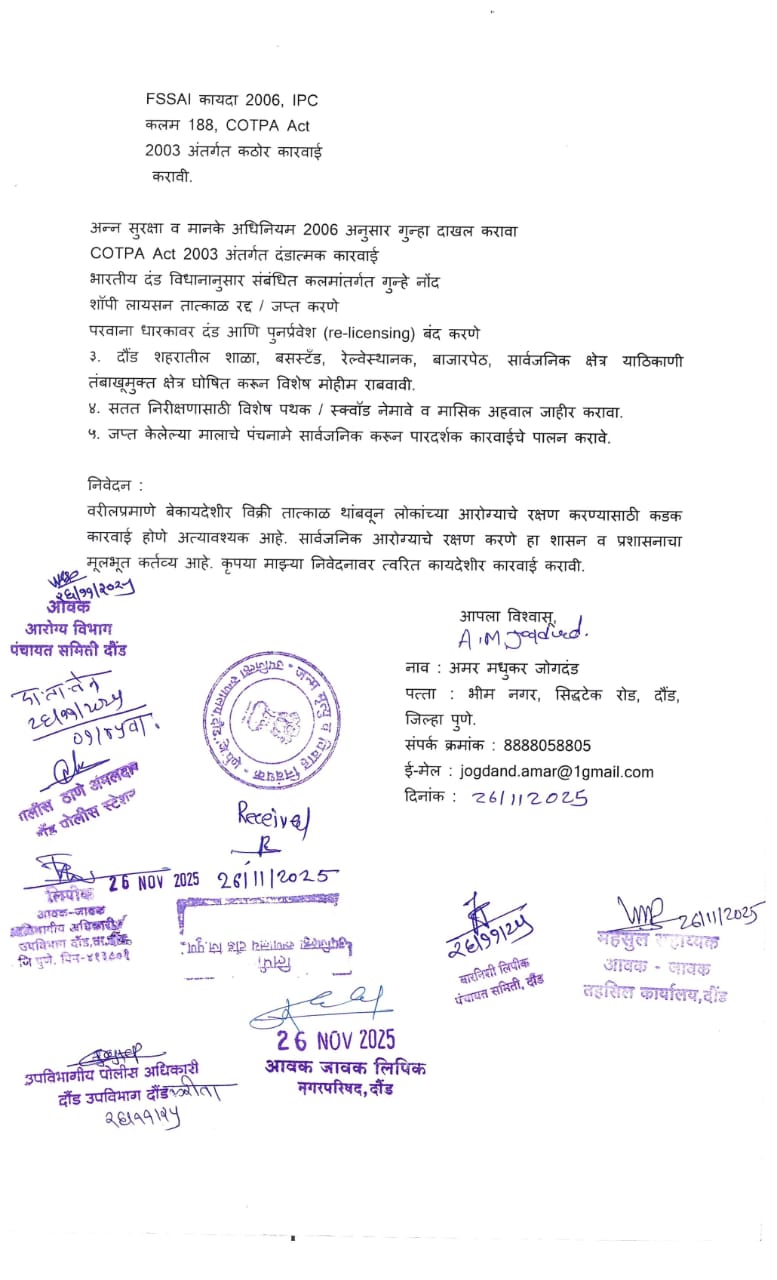 FSSAI कायदा 2006, IPC
कलम 188, COTPA Act
2003 अंतर्गत कठोर कारवाई
करावी.
अन्न सुरक्षा व मानके अधिनियम 2006 अनुसार गुन्हा दाखल करावा
COTPA Act 2003 अंतर्गत दंडात्मक कारवाई
भारतीय दंड विधानानुसार संबंधित कलमांतर्गत गुन्हे नोंद
शॉपी लायसन तात्काळ रद्द / जप्त करणे
परवाना धारकावर दंड आणि पुनर्प्रवेश (re-licensing) बंद करणे
३. दौंड शहरातील शाळा, बसस्टँड, रेल्वेस्थानक, बाजारपेठ, सार्वजनिक क्षेत्र याठिकाणी
तंबाखूमुक्त क्षेत्र घोषित करून विशेष मोहीम राबवावी.
४. सतत निरीक्षणासाठी विशेष पथक / स्क्वॉड नेमावे व मासिक अहवाल जाहीर करावा.
५. जप्त केलेल्या मालाचे पंचनामे सार्वजनिक करून पारदर्शक कारवाईचे पालन करावे.
निवेदन :
वरीलप्रमाणे बेकायदेशीर विक्री तात्काळ थांबवून लोकांच्या आरोग्याचे रक्षण करण्यासाठी कडक
कारवाई होणे अत्यावश्यक आहे. सार्वजनिक आरोग्याचे रक्षण करणे हा शासन व प्रशासनाचा
मूलभूत कर्तव्य आहे. कृपया माझ्या निवेदनावर त्वरित कायदेशीर कारवाई करावी.
आपला विश्वासू,
A.M Jogdand.
नाव : अमर मधुकर जोगदंड
पत्ता : भीम नगर, सिद्धटेक रोड, दौंड,
जिल्हा पुणे.
संपर्क क्रमांक : 8888058805
ई-मेल : jogdand.amar@1gmail.com
दिनांक : 26/11/2025
२६/११/२०२५
आवक
आरोग्य विभाग
पंचायत समिती दौंड
२६/११/२०२५
ठाणे अंमलदार
दौंड पोलीस स्टेशन
जन्म मृत्यु व विवाह निबंधक
उपजिल्हा रुग्णालय, दौंड
Received
26/11/2025
26 NOV 2025
लिपीक
आवक-जावक
उपविभाग दौंड
लिपीक
उपजिल्हा रुग्णालय दौंड जि पुणे
26 NOV 2025
आवक जावक लिपिक
नगरपरिषद, दौंड
२६/११/२५
बारनिशी लिपीक
पंचायत समिती, दौंड
26/11/2025
महसुल सहाय्यक
आवक - जावक
तहसिल कार्यालय, दौंड
उपविभागीय पोलीस अधिकारी
दौंड उपविभाग दौंड
२६/११/२५